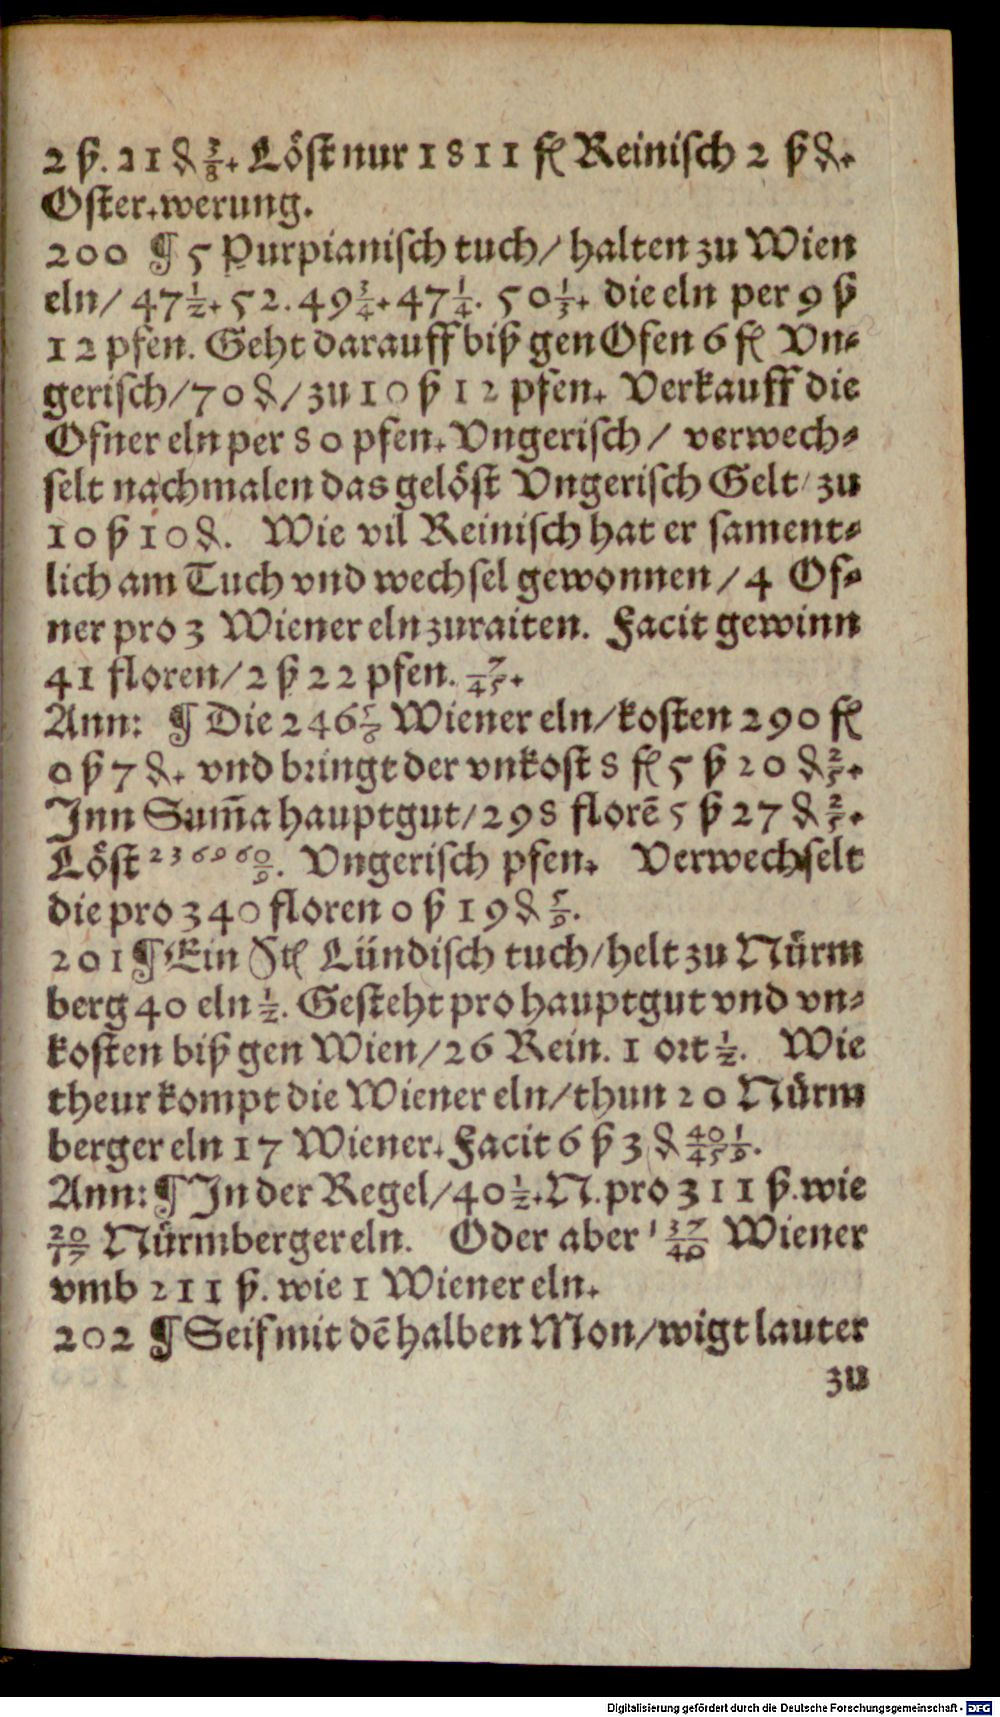 2 ß. 21 ₰ 3/8. Löst nur 1811 fl Reinisch 2 ß ₰.
Oster. werung.
200 ¶ 5 Purpianisch tuch / halten zu Wien
eln / 47 1/2. 52. 49 3/4. 47 1/4. 50 1/3. die eln per 9 ß
12 pfen. Geht darauff biß gen Ofen 6 fl Vn⸗
gerisch / 70 ₰ / zu 10 ß 12 pfen. Verkauff die
Ofner eln per 80 pfen. Vngerisch / verwech⸗
selt nachmalen das gelöst Vngerisch Gelt / zu
10 ß 10 ₰. Wie vil Reinisch hat er sament⸗
lich am Tuch vnd wechsel gewonnen / 4 Of⸗
ner pro 3 Wiener eln zuraiten. Facit gewinn
41 floren / 2 ß 22 pfen. 7/45.
Ann: ¶ Die 246 5/6 Wiener eln / kosten 290 fl
0 ß 7 ₰. vnd bringt der vnkost 8 fl 5 ß 20 ₰ 2/5.
Inn Sum̃a hauptgut / 298 florẽ 5 ß 27 ₰ 2/5.
Löst 236960/9. Vngerisch pfen. Verwechselt
die pro 340 floren 0 ß 19 ₰ 5/9.
201 ¶ Ein Stl Lündisch tuch / helt zu Nürm
berg 40 eln 1/2. Gesteht pro hauptgut vnd vn⸗
kosten biß gen Wien / 26 Rein. 1 ort 1/2. Wie
theur kompt die Wiener eln / thun 20 Nürm
berger eln 17 Wiener. Facit 6 ß 3 ₰ 401/459.
Ann: ¶ In der Regel / 40 1/2. N. pro 311 ß. wie
20/17 Nürmberger eln. Oder aber 1377/40 Wiener
vmb 211 ß. wie 1 Wiener eln.
202 ¶ Seif mit dẽ halben Mon / wigt lauter
zu
Digitalisierung gefördert durch die Deutsche Forschungsgemeinschaft - DFG